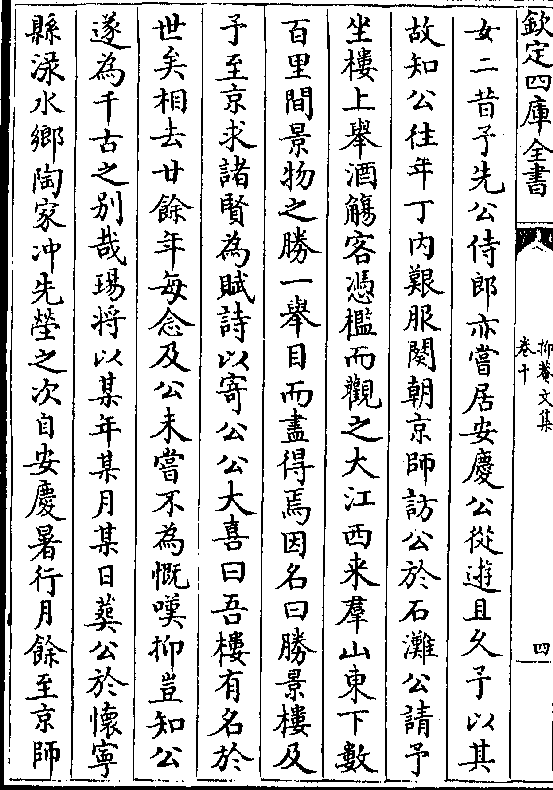 欽定四庫全書
抑菴文集
卷十
四
女二昔予先公侍郎亦嘗居安慶公從遊且久予以其
故知公往年丁内艱服闋朝京師訪公於石灘公請予
坐樓上舉酒觴客憑檻而觀之大江西来羣山東下數
百里間景物之勝一舉目而盡得焉因名曰勝景樓及
予至京求諸賢為賦詩以寄公公大喜曰吾樓有名於
世矣相去廿餘年每念及公未嘗不為慨嘆抑豈知公
遂為千古之别哉瑒将以某年某月某日葬公於懷寧
縣渌水鄉陶家冲先塋之次自安慶暑行月餘至京師